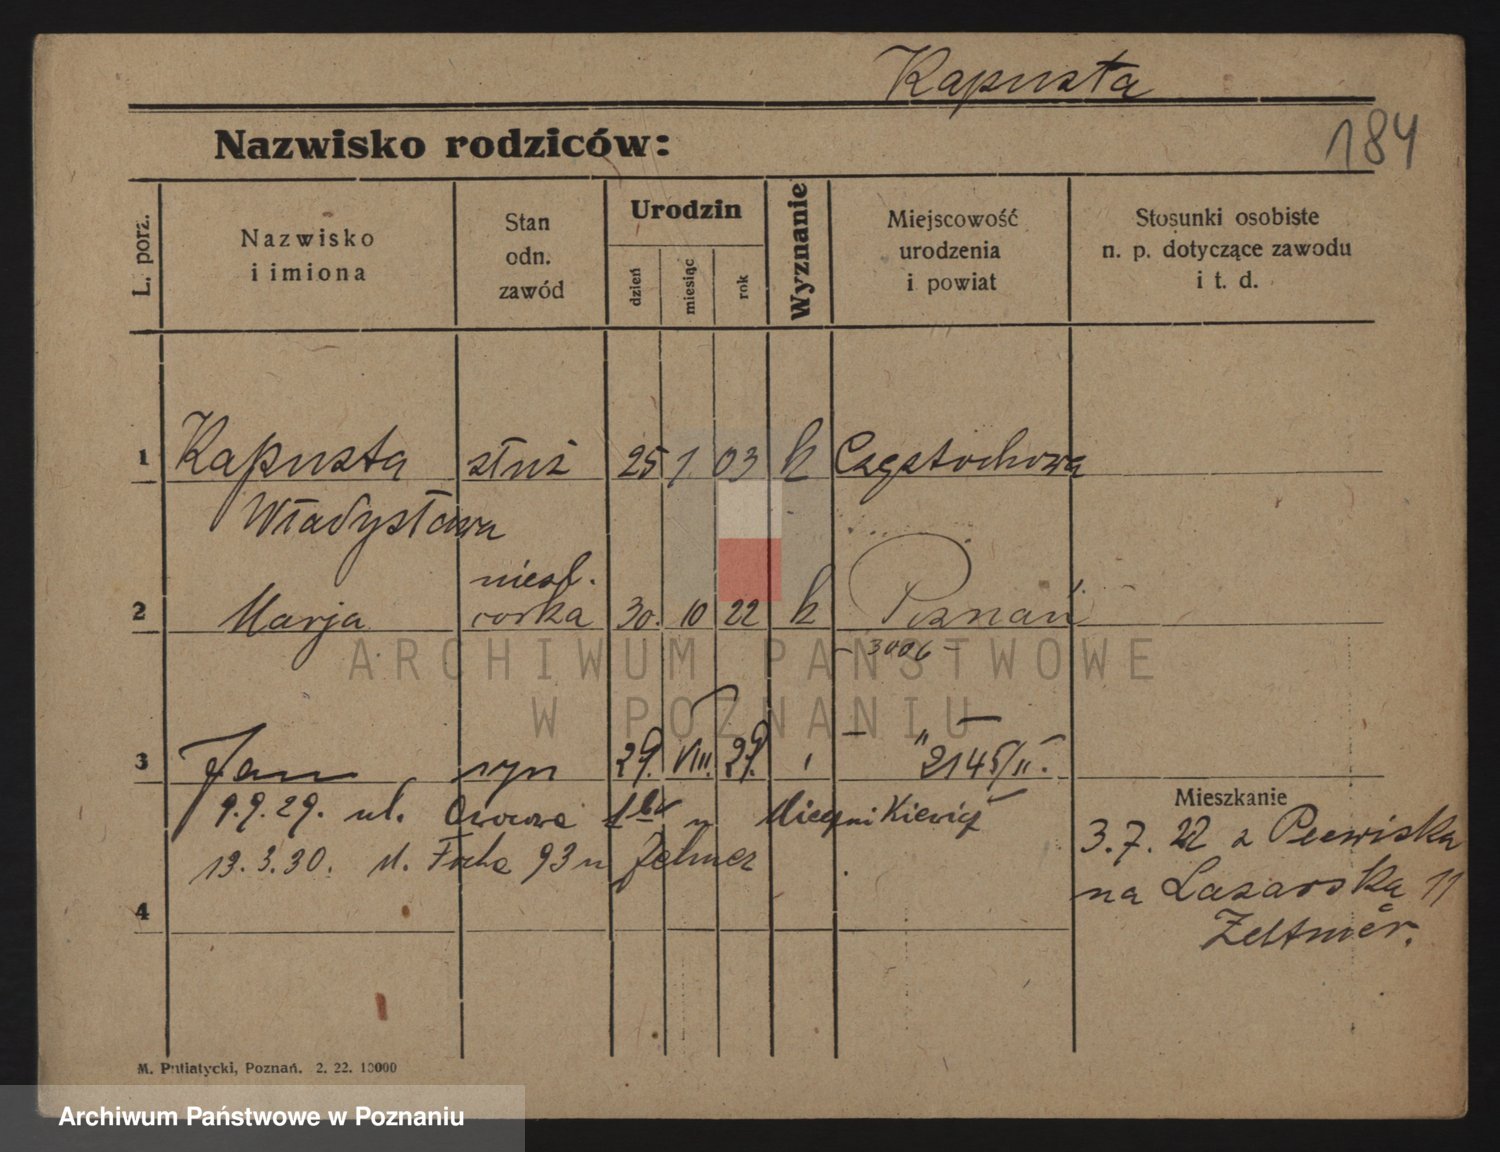 Kapusta
184
Nazwisko rodziców:
L. porz.
Nazwisko
i imiona
Stan
odn.
zawód
Urodzin
dzień
miesiąc
rok
Wyznanie
Miejscowość
urodzenia
i powiat
Stosunki osobiste
n. p. dotyczące zawodu
i t. d.
1 Kapusta służ 25 1 03 k Częstochowa
Władysława
nieśl.
2 Marja córka 30. 10 22 k Poznań
- 3006 -
3 Jan syn 29. VIII. 29. " 2145/II.
9.9.29. ul.
13.3.30. ul. Focha 93 u
4
Mieszkanie
3.7.22 z
na Lazarska 11
M. Putiatycki, Poznań. 2. 22. 10000
ARCHIWUM PAŃSTWOWE
W POZNANIU
Archiwum Państwowe w Poznaniu